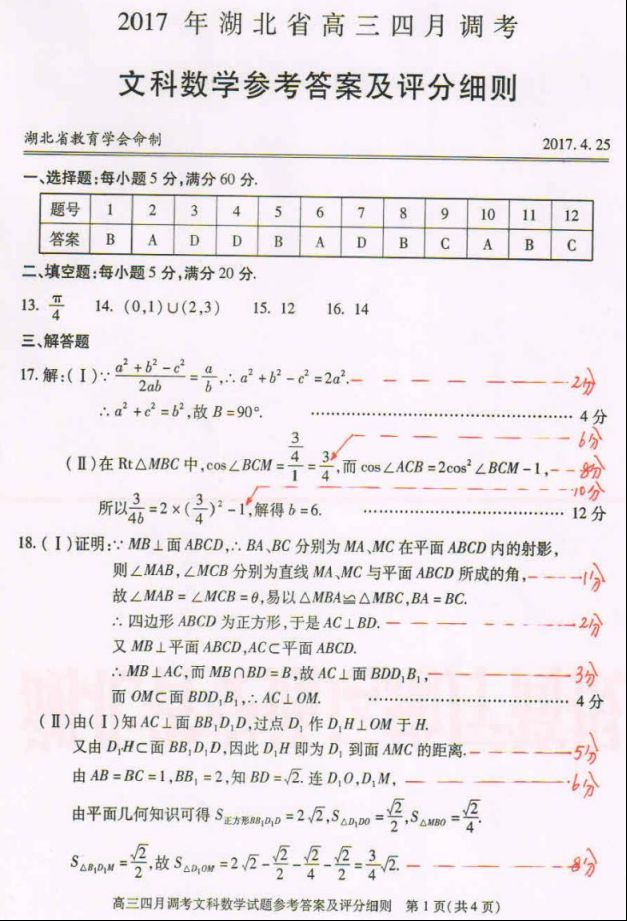 2017 年湖北省高三四月调考
文科数学参考答案及评分细则
湖北省教育学会命制 2017.4.25
一、选择题:每小题5分,满分60分.
题号 1 2 3 4 5 6 7 8 9 10 11 12
答案 B A D D B A D B C A B C
二、填空题:每小题5分,满分20分.
13. π/4 14. (0,1)∪(2,3) 15. 12 16. 14
三、解答题
17. 解:(Ⅰ)∵ (a²+b²-c²)/2ab = a/b, ∴ a²+b²-c²=2a². 2分
∴ a²+c²=b²,故 B=90°. …… 4分
6分
(Ⅱ)在 Rt△MBC 中,cos∠BCM = (3/4)/1 = 3/4,而 cos∠ACB=2cos²∠BCM-1, 8分
10分
所以 3/4b = 2×(3/4)²-1,解得 b=6. …… 12分
18. (Ⅰ)证明:∵ MB⊥面 ABCD,∴ BA、BC 分别为 MA、MC 在平面 ABCD 内的射影,
则∠MAB,∠MCB 分别为直线 MA、MC 与平面 ABCD 所成的角, 1分
故∠MAB=∠MCB=θ,易以△MBA≌△MBC,BA=BC.
∴ 四边形 ABCD 为正方形,于是 AC⊥BD. 2分
又 MB⊥平面 ABCD,AC⊂平面 ABCD.
∴ MB⊥AC,而 MB∩BD=B,故 AC⊥面 BDD₁B₁, 3分
而 OM⊂面 BDD₁B₁,∴ AC⊥OM. …… 4分
(Ⅱ)由(Ⅰ)知 AC⊥面 BB₁D₁D,过点 D₁ 作 D₁H⊥OM 于 H.
又由 D₁H⊂面 BB₁D₁D,因此 D₁H 即为 D₁ 到面 AMC 的距离. 5分
由 AB=BC=1,BB₁=2,知 BD=√2. 连 D₁O,D₁M, 6分
由平面几何知识可得 S正方形BB₁D₁D=2√2,S△D₁DO=√2/2,S△MBO=√2/4.
S△B₁D₁M=√2/2,故 S△D₁OM=2√2-√2/2-√2/4-√2/2=3/4√2. 8分
高三四月调考文科数学试题参考答案及评分细则 第1页(共4页)